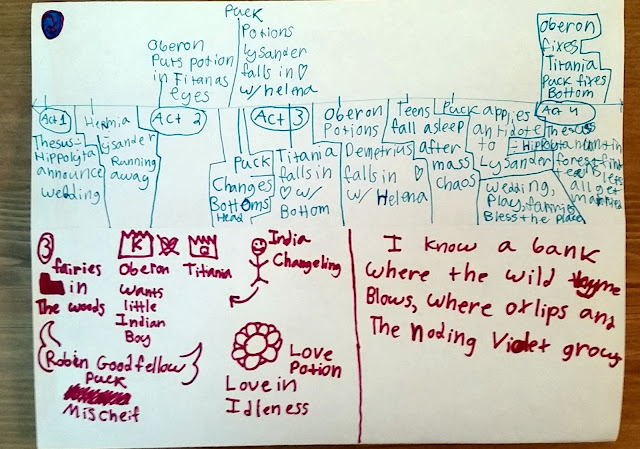 Puck
Potions
Lysander
falls in ♡
w/ helma
Oberon
Puts potion
in Titanas
eyes
Oberon
fixes
Titania
Puck fixes
Bottom
Act 1
Thesus-
Hippolyta
announce
wedding
Hermia
Lysander
Running
away
Act 2
Puck
Changes
Bottoms
Head
Act 3
Titania
falls in
♡ w/
Bottom
Oberon
Potions
Demetrius
falls in ♡
w/ Helena
Teens
fall asleep
after
mass
chaos
Puck applies
antidote
to
Lysander
wedding,
Play, fairies
Bless the Place
Act 4
Thesus
Hippolyta hunt in
forest find
teens lets
all get
married
3
fairies
in
The woods
K
Q
Oberon
Titiania
wants
little
Indian
Boy
India
Changeling
Robin Goodfellow
Puck
Mischeif
Love
Potion
Love in
Idleness
I know a bank
where the wild thyme
Blows, where oxlips and
The Noding Violet grows